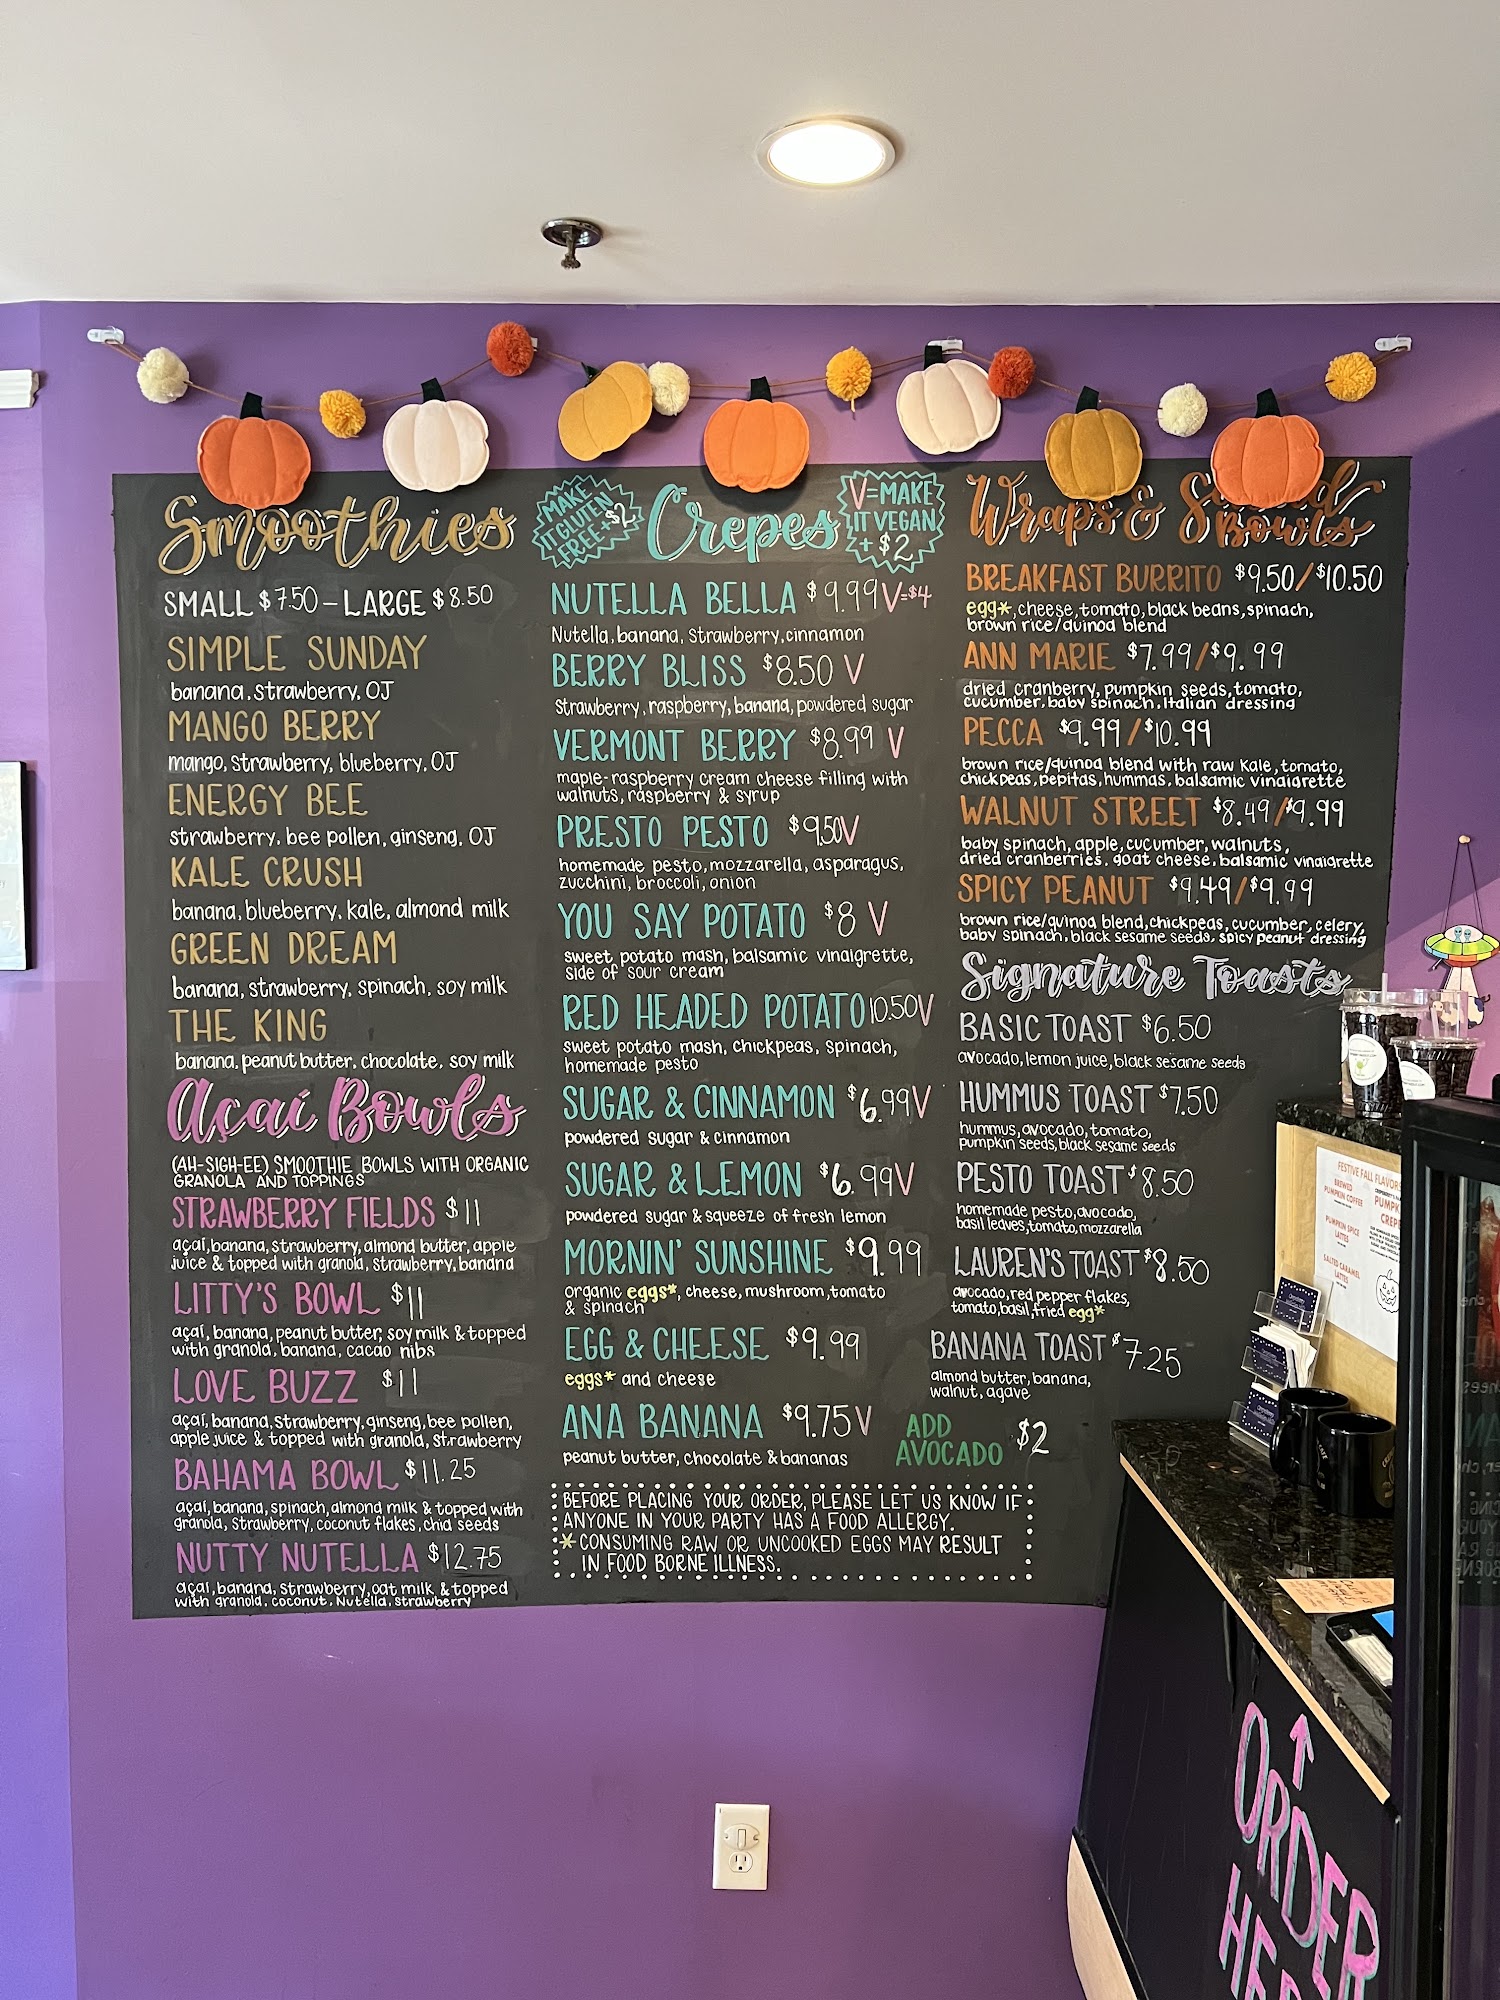 Smoothies
SMALL $7.50 - LARGE $8.50
SIMPLE SUNDAY
banana, strawberry, OJ
MANGO BERRY
mango, strawberry, blueberry, OJ
ENERGY BEE
strawberry, bee pollen, ginseng, OJ
KALE CRUSH
banana, blueberry, kale, almond milk
GREEN DREAM
banana, strawberry, spinach, soy milk
THE KING
banana, peanut butter, chocolate, soy milk
Açaí Bowls
(AH-SIGH-EE) SMOOTHIE BOWLS WITH ORGANIC
GRANOLA AND TOPPINGS
STRAWBERRY FIELDS $11
açaí, banana, strawberry, almond butter, apple
juice & topped with granola, strawberry, banana
LITTY'S BOWL $11
açaí, banana, peanut butter, soy milk & topped
with granola, banana, cacao nibs
LOVE BUZZ $11
açaí, banana, strawberry, ginseng, bee pollen,
apple juice & topped with granola, strawberry
BAHAMA BOWL $11.25
açaí, banana, spinach, almond milk & topped with
granola, strawberry, coconut flakes, chia seeds
NUTTY NUTELLA $12.75
açaí, banana, strawberry, oat milk & topped
with granola, coconut, Nutella, strawberry
MAKE
IT GLUTEN
FREE + $2
Crepes
V=MAKE
IT VEGAN
+ $2
NUTELLA BELLA $9.99 V=$4
Nutella, banana, strawberry, cinnamon
BERRY BLISS $8.50 V
strawberry, raspberry, banana, powdered sugar
VERMONT BERRY $8.99 V
maple-raspberry cream cheese filling with
walnuts, raspberry & syrup
PRESTO PESTO $9.50 V
homemade pesto, mozzarella, asparagus,
zucchini, broccoli, onion
YOU SAY POTATO $8 V
sweet potato mash, balsamic vinaigrette,
side of sour cream
RED HEADED POTATO 10.50 V
sweet potato mash, chickpeas, spinach,
homemade pesto
SUGAR & CINNAMON $6.99 V
powdered sugar & cinnamon
SUGAR & LEMON $6.99 V
powdered sugar & squeeze of fresh lemon
MORNIN' SUNSHINE $9.99
organic eggs*, cheese, mushroom, tomato
& spinach
EGG & CHEESE $9.99
eggs* and cheese
ANA BANANA $9.75 V
peanut butter, chocolate & bananas
ADD
AVOCADO $2
BEFORE PLACING YOUR ORDER, PLEASE LET US KNOW IF
ANYONE IN YOUR PARTY HAS A FOOD ALLERGY.
* CONSUMING RAW OR UNCOOKED EGGS MAY RESULT
IN FOOD BORNE ILLNESS.
Wraps &
Bowls
BREAKFAST BURRITO $9.50/$10.50
egg*, cheese, tomato, black beans, spinach,
brown rice/quinoa blend
ANN MARIE $7.99/$9.99
dried cranberry, pumpkin seeds, tomato,
cucumber, baby spinach, Italian dressing
PECCA $9.99/$10.99
brown rice/quinoa blend with raw kale, tomato,
chickpeas, pepitas, hummas, balsamic vinaigrette
WALNUT STREET $8.49/$9.99
baby spinach, apple, cucumber, walnuts,
dried cranberries, goat cheese, balsamic vinaigrette
SPICY PEANUT $9.49/$9.99
brown rice/quinoa blend, chickpeas, cucumber, celery,
baby spinach, black sesame seeds, spicy peanut dressing
Signature Toasts
BASIC TOAST $6.50
avocado, lemon juice, black sesame seeds
HUMMUS TOAST $7.50
hummus, avocado, tomato,
pumpkin seeds, black sesame seeds
PESTO TOAST $8.50
homemade pesto, avocado,
basil leaves, tomato, mozzarella
LAUREN'S TOAST $8.50
avocado, red pepper flakes,
tomato, basil, fried egg*
BANANA TOAST $7.25
almond butter, banana,
walnut, agave
FESTIVE FALL
BREWED
PUMPKIN COFFEE
PUMPKIN SPICE
LATTES
SALTED CARAMEL
LATTES
ORDER